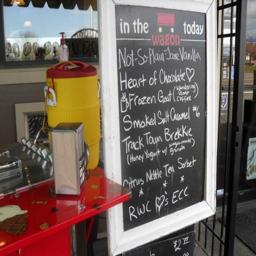 in the today
wagon
Not-So-Plain-Jane Vanilla
Heart of Chocolate
Frozen Goat
Smoked Salt Caramel
Track Town Brekkie
(Honey Yogurt w/
Citrus Nettle Tea Sorbet
RWC ♡'s ECC